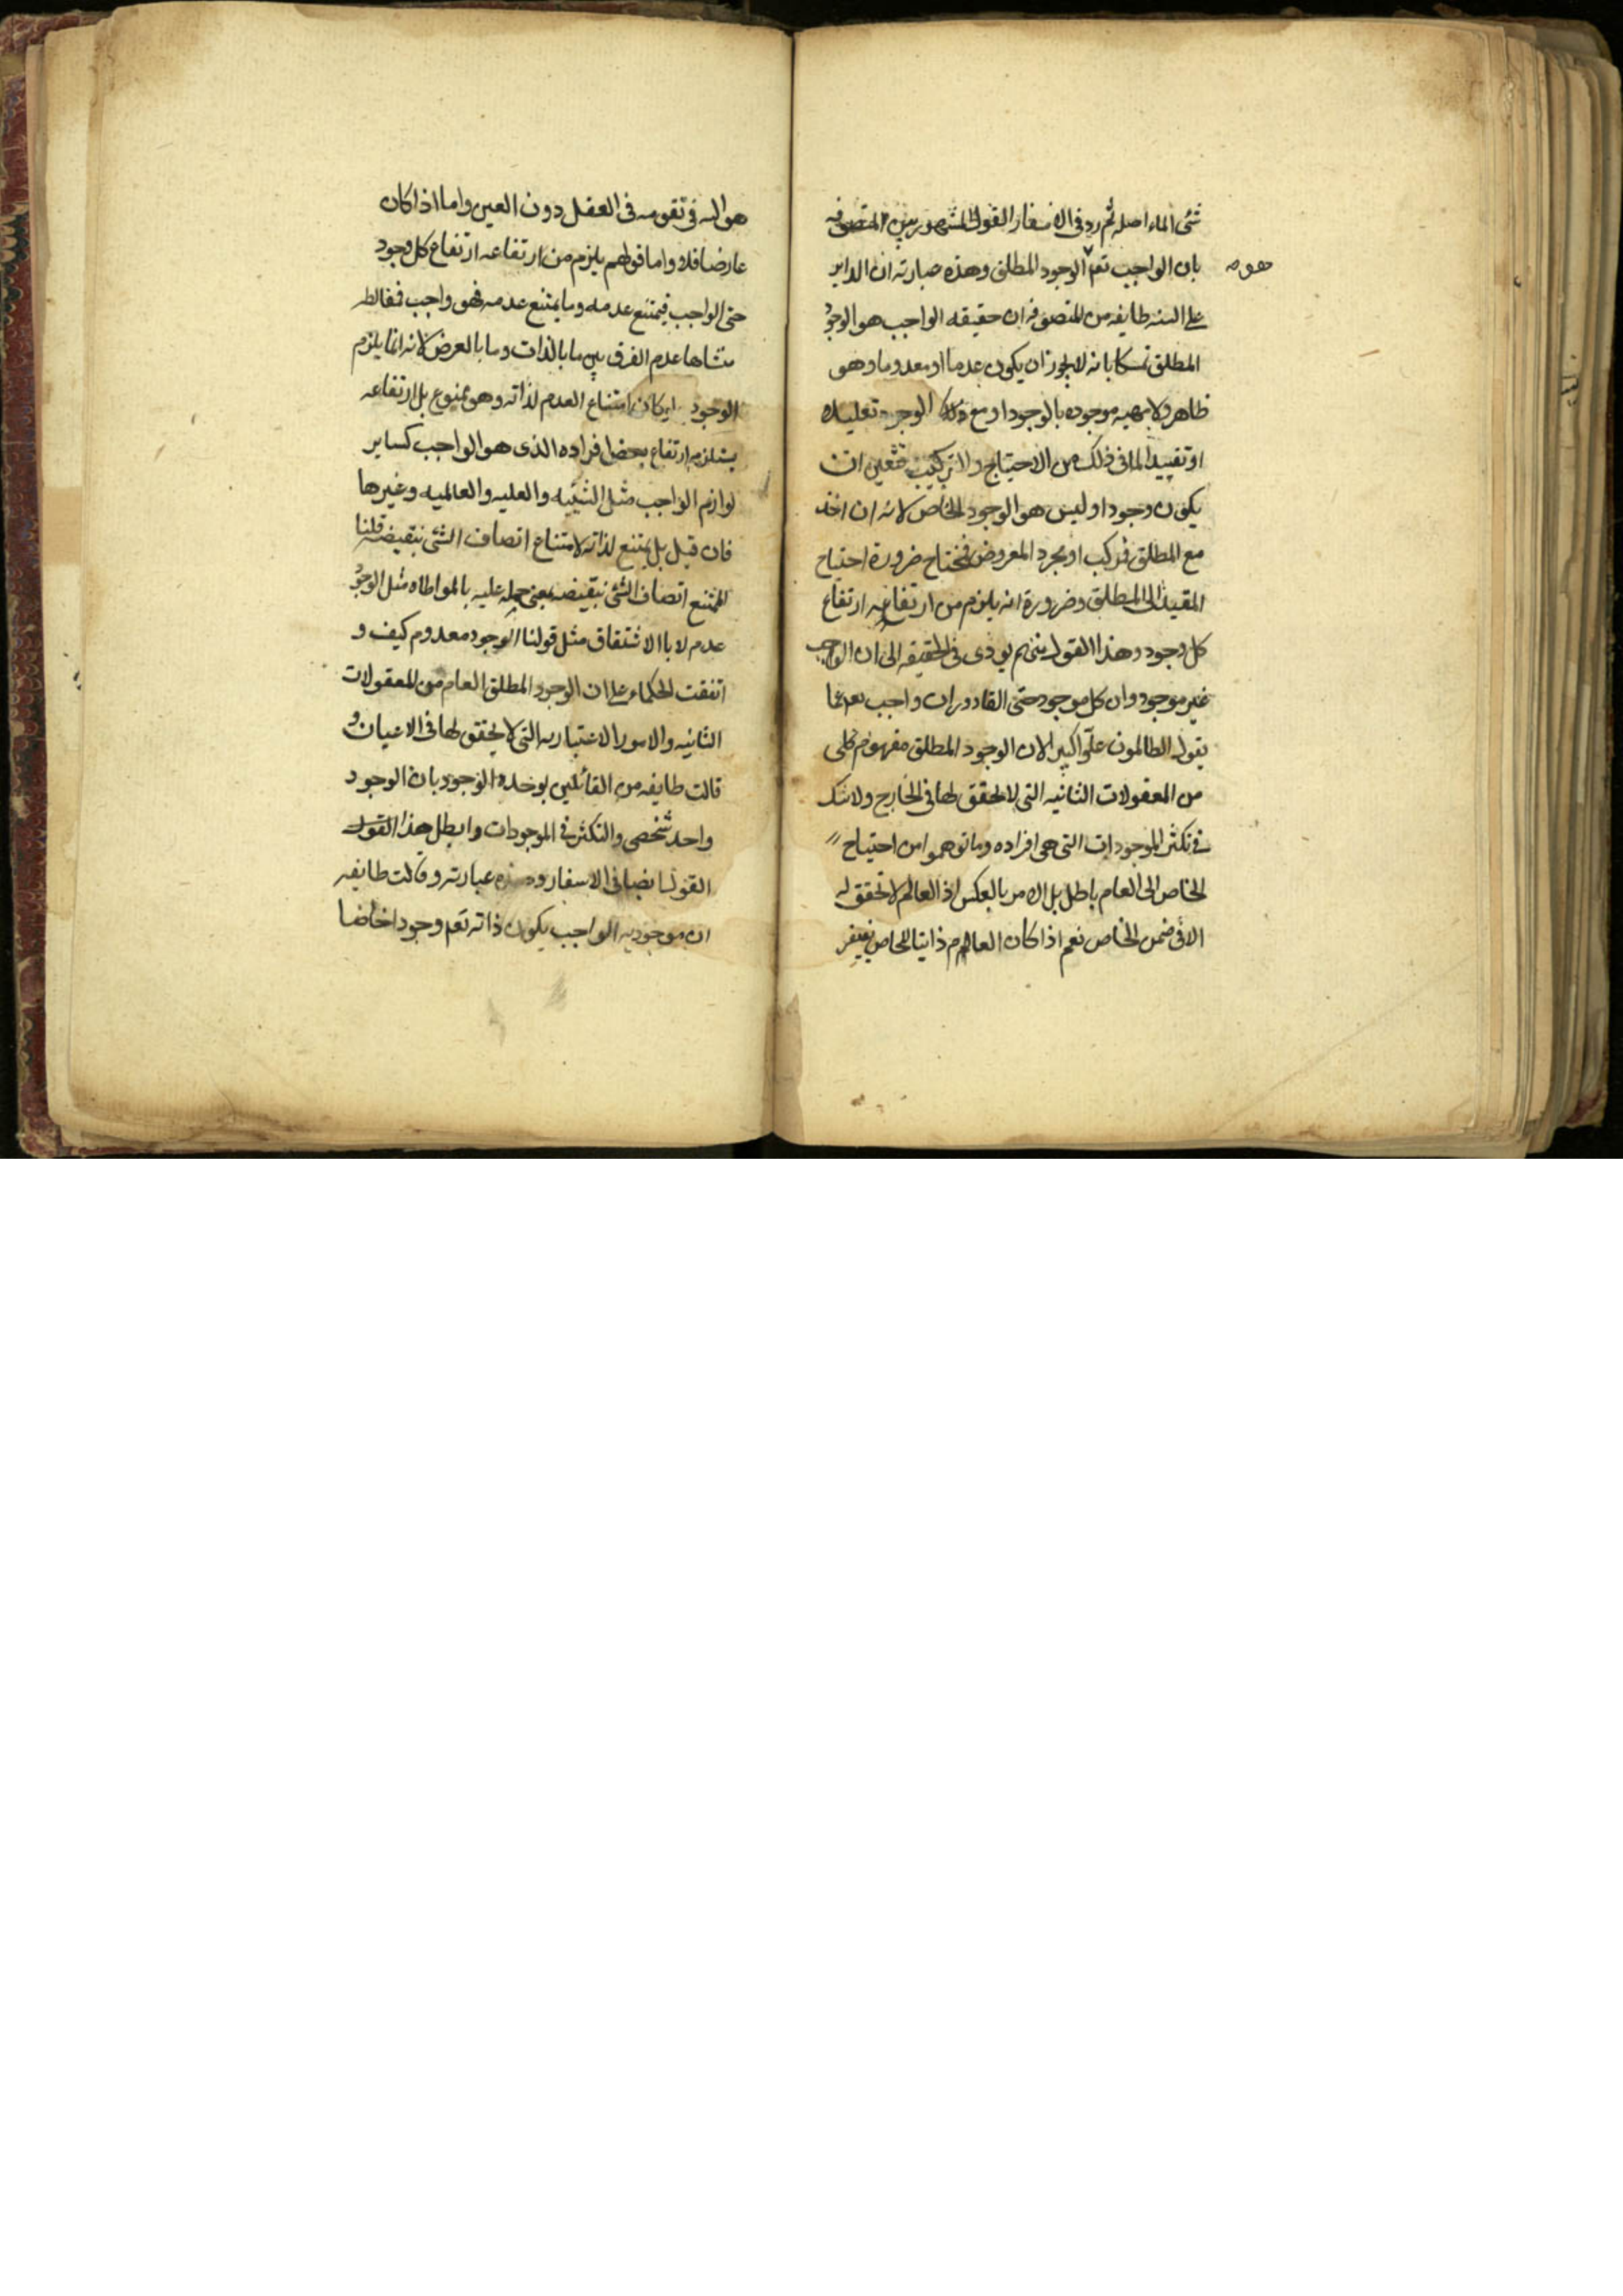 شئ الماء اصله ثم رد في الاسفار القول المشهور بين المتصوفه
بان الواجب تعم الوجود المطلق وهذه عبارته ان الداير
هو صه
على السنه طايفه من المتصوفه ان حقيقه الواجب هو الوجود
المطلق تمسكا بانه لا يجوز ان يكون عدما او معدوما وهو
ظاهر ولا مهيه موجوده بالوجود او مع ذلك الوجود تعليلا
او تقييدا لما في ذلك من الاحتياج ولا تركيب فتعين ان
يكون وجودا وليس هو الوجود الخاص لانه ان اخذ
مع المطلق فمركب او مجرد المعروض فمحتاج ضرورة احتياج
المقيد الى المطلق وضرورة انه يلزم من ارتفاعه ارتفاع
كل وجود وهذا القول منهم يودى في الحقيقه الى ان الواجب
غير موجود وان كل موجود حتى القاذورات واجب تعم عما
يقول الظالمون علوا كبيرا لان الوجود المطلق مفهوم كلى
من المعقولات الثانيه التى لا تحقق لها في الخارج ولا شك
في تكثر الموجودات التى هى افراده وما توهموا من احتياج
الخاص الى العام باطل بل الامر بالعكس اذ العام لا تحقق له
الا في ضمن الخاص نعم اذا كان العام ذاتيا للخاص يفتقر
هو اليه في تقومه في العقل دون العين واما اذا كان
عارضا فلا واما قولهم يلزم من ارتفاعه ارتفاع كل وجود
حتى الواجب فيمتنع عدمه وما يمتنع عدمه فهو واجب فمغالطه
منشاها عدم الفرق بين ما بالذات وما بالعرض لانه انما يلزم
الوجود لو كان امتناع العدم لذاته وهو ممنوع بل ارتفاعه
يستلزم ارتفاع بعض افراده الذى هو الواجب كساير
لوازم الواجب مثل الشيئيه والعليه والعالميه وغيرها
فان قيل بل يمتنع لذاته لامتناع اتصاف الشئ بنقيضه قلنا
الممتنع اتصاف الشئ بنقيضه بمعنى حمله عليه بالمواطاه مثل الوجود
عدم لا بالاشتقاق مثل قولنا الوجود معدوم كيف و
اتفقت الحكماء على ان الوجود المطلق العام من المعقولات
الثانيه والامور الاعتباريه التى لا تحقق لها في الاعيان و
قالت طايفه من القائلين بوحدة الوجود بان الوجود
واحد شخصى والتكثر في الموجودات وابطل هذا القول
القول ايضا في الاسفار وهذه عبارته وقالت طايفه
ان موجوديه الواجب بكون ذاته تعم وجودا خاصا